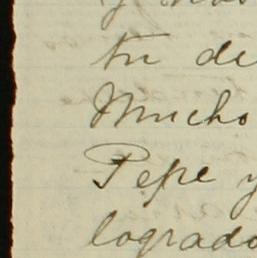 y nos
tu de
Mucho
Pepe y
logrado